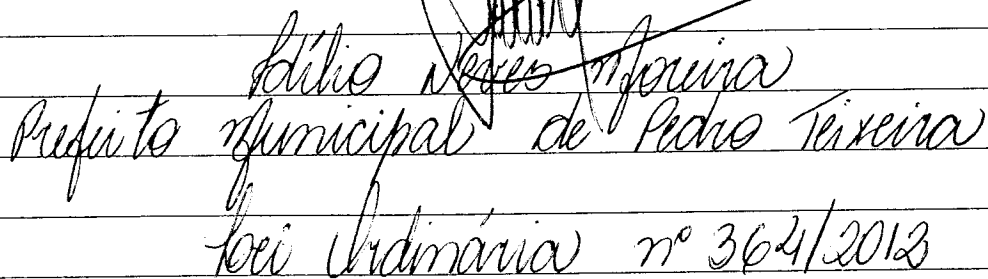 Idílio Neves Moreira
Prefeito Municipal de Pedro Teixeira
Lei Ordinária nº 364/2012